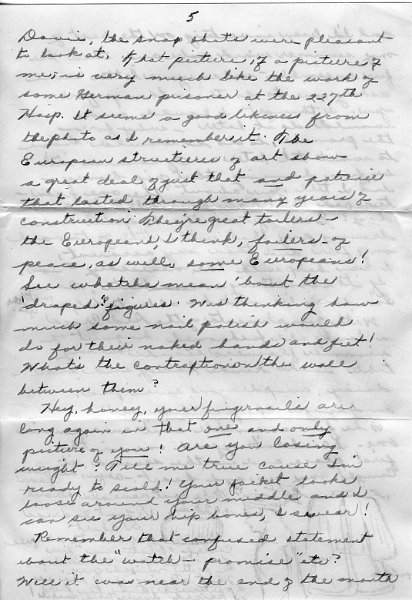 5
Dovie, the snap shots were pleasant
to look at. That picture, of a picture of
me, is very much like the work of
some German prisoner at the 227th
Hosp. It seems a good likeness from
the photo as I remember it. The
European structures of art show
a great deal of just that and patience
that lasted through many years of
construction. They're great toilers -
the Europeans, I think, foilers - of
peace, as well, some Europeans!
See whatche mean 'bout the
'draped' figures. Was thinking how
much some nail polish would
do for their naked hands and feet!
What's the contraption on the wall
between them?
Hey, honey, your fingernails are
long again in that one and only
picture of you! Are you losing
weight? Tell me true cause I'm
ready to scold! Your jacket looks
loose around your middle and I
can see your hip bones, I swear!
Remember that confused statement
about the "watch - promise" etc?
Well it was near the end of the month